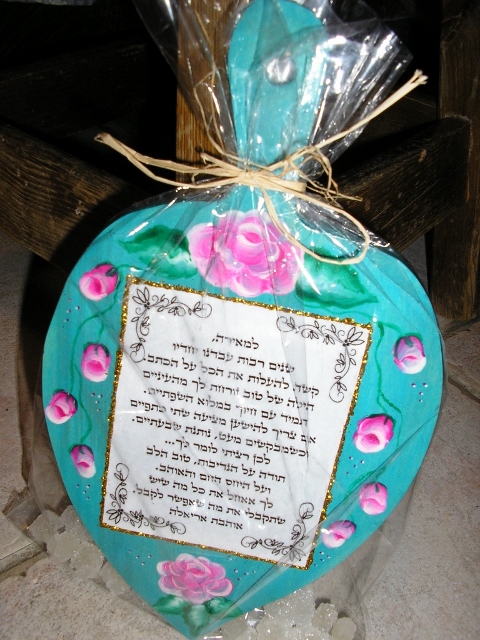 למאירה,
שנים רבות עבדנו יחדיו
קשה להעלות את הכל על הכתב.
הילה של טוב זורחת לך מהעיניים
תמיד עם חיוך במלוא השפתיים.
אם צריך להישען מציעה שתי כתפיים
וכשמבקשים מעט, נותנת שבעתיים.
לכן רציתי לומר לך...
תודה על הנדיבות, טוב הלב
ועל היחס החם והאוהב.
לך אאחל את כל מה שיש
שתקבלי את מה שאפשר לקבל.
אוהבת אריאלה